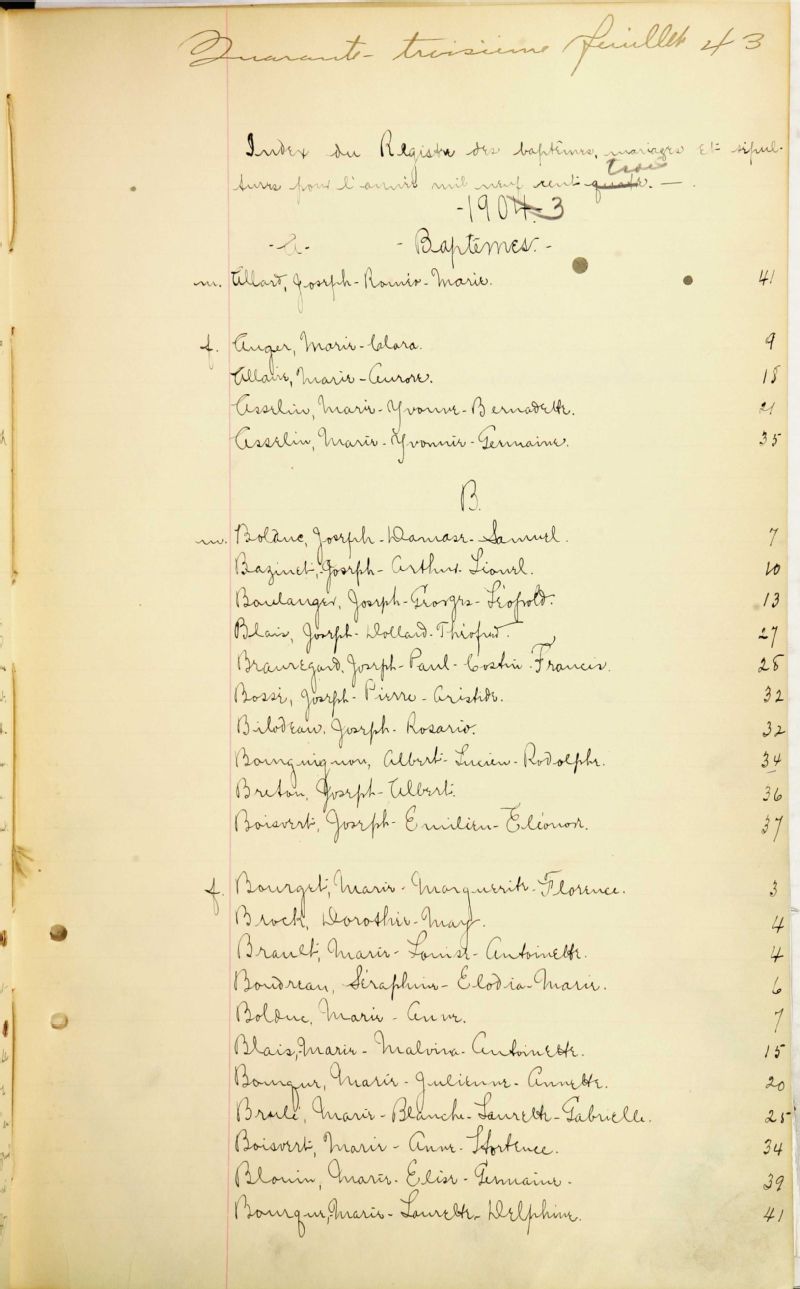 Quarante-troisième feuillet 43
Index du Registre des baptêmes, mariages et sépul-
trois
tures pour l'année mil neuf cent quatre. — .
-1904-3
-A- - Baptêmes. -
m. Allard, Joseph-Roméo-Marie. 41
f. Auger, Marie-Clara. 9
Allaire, Marie-Aurore. 18
Asselin, Marie-Yvonne-Bernadette. 21
Asselin, Marie-Yvonnie-Germaine. 35
B.
m. Bolduc, Joseph-Damase-Samuel. 7
Bazinet, Joseph-Arthur-Lionel. 10
Boulanger, Joseph-Georges-Léopold. 13
Blais, Joseph-Dollard-Théofred. 27
Beauregard, Joseph-Paul-Costin-Francis. 28
Bossé, Joseph-Pierre-Aristide. 32
Bilodeau, Joseph-Rosario. 32
Bourguignon, Albert-Lucien-Rodolphe. 34
Breton, Joseph-Albert. 36
Boisvert, Joseph-Emilien-Eléonor. 37
f. Bourget, Marie-Marguerite-Florence. 3
Brock, Dorothie-May. 4
Brault, Marie-Louise-Antoinette. 4
Boudreau, Séraphine-Elodia-Marie. 6
Bolduc, Marie-Anne. 7
Blais, Marie-Malvina-Antoinette. 15
Bourque, Marie-Julienne-Annette. 20
Brulé, Marie-Blanche-Laurette-Gabrielle. 25
Boisvert, Marie-Anne-Hortence. 34
Blouin, Marie-Elise-Germaine. 39
Bourque, Marie-Laurette-Delphine. 41